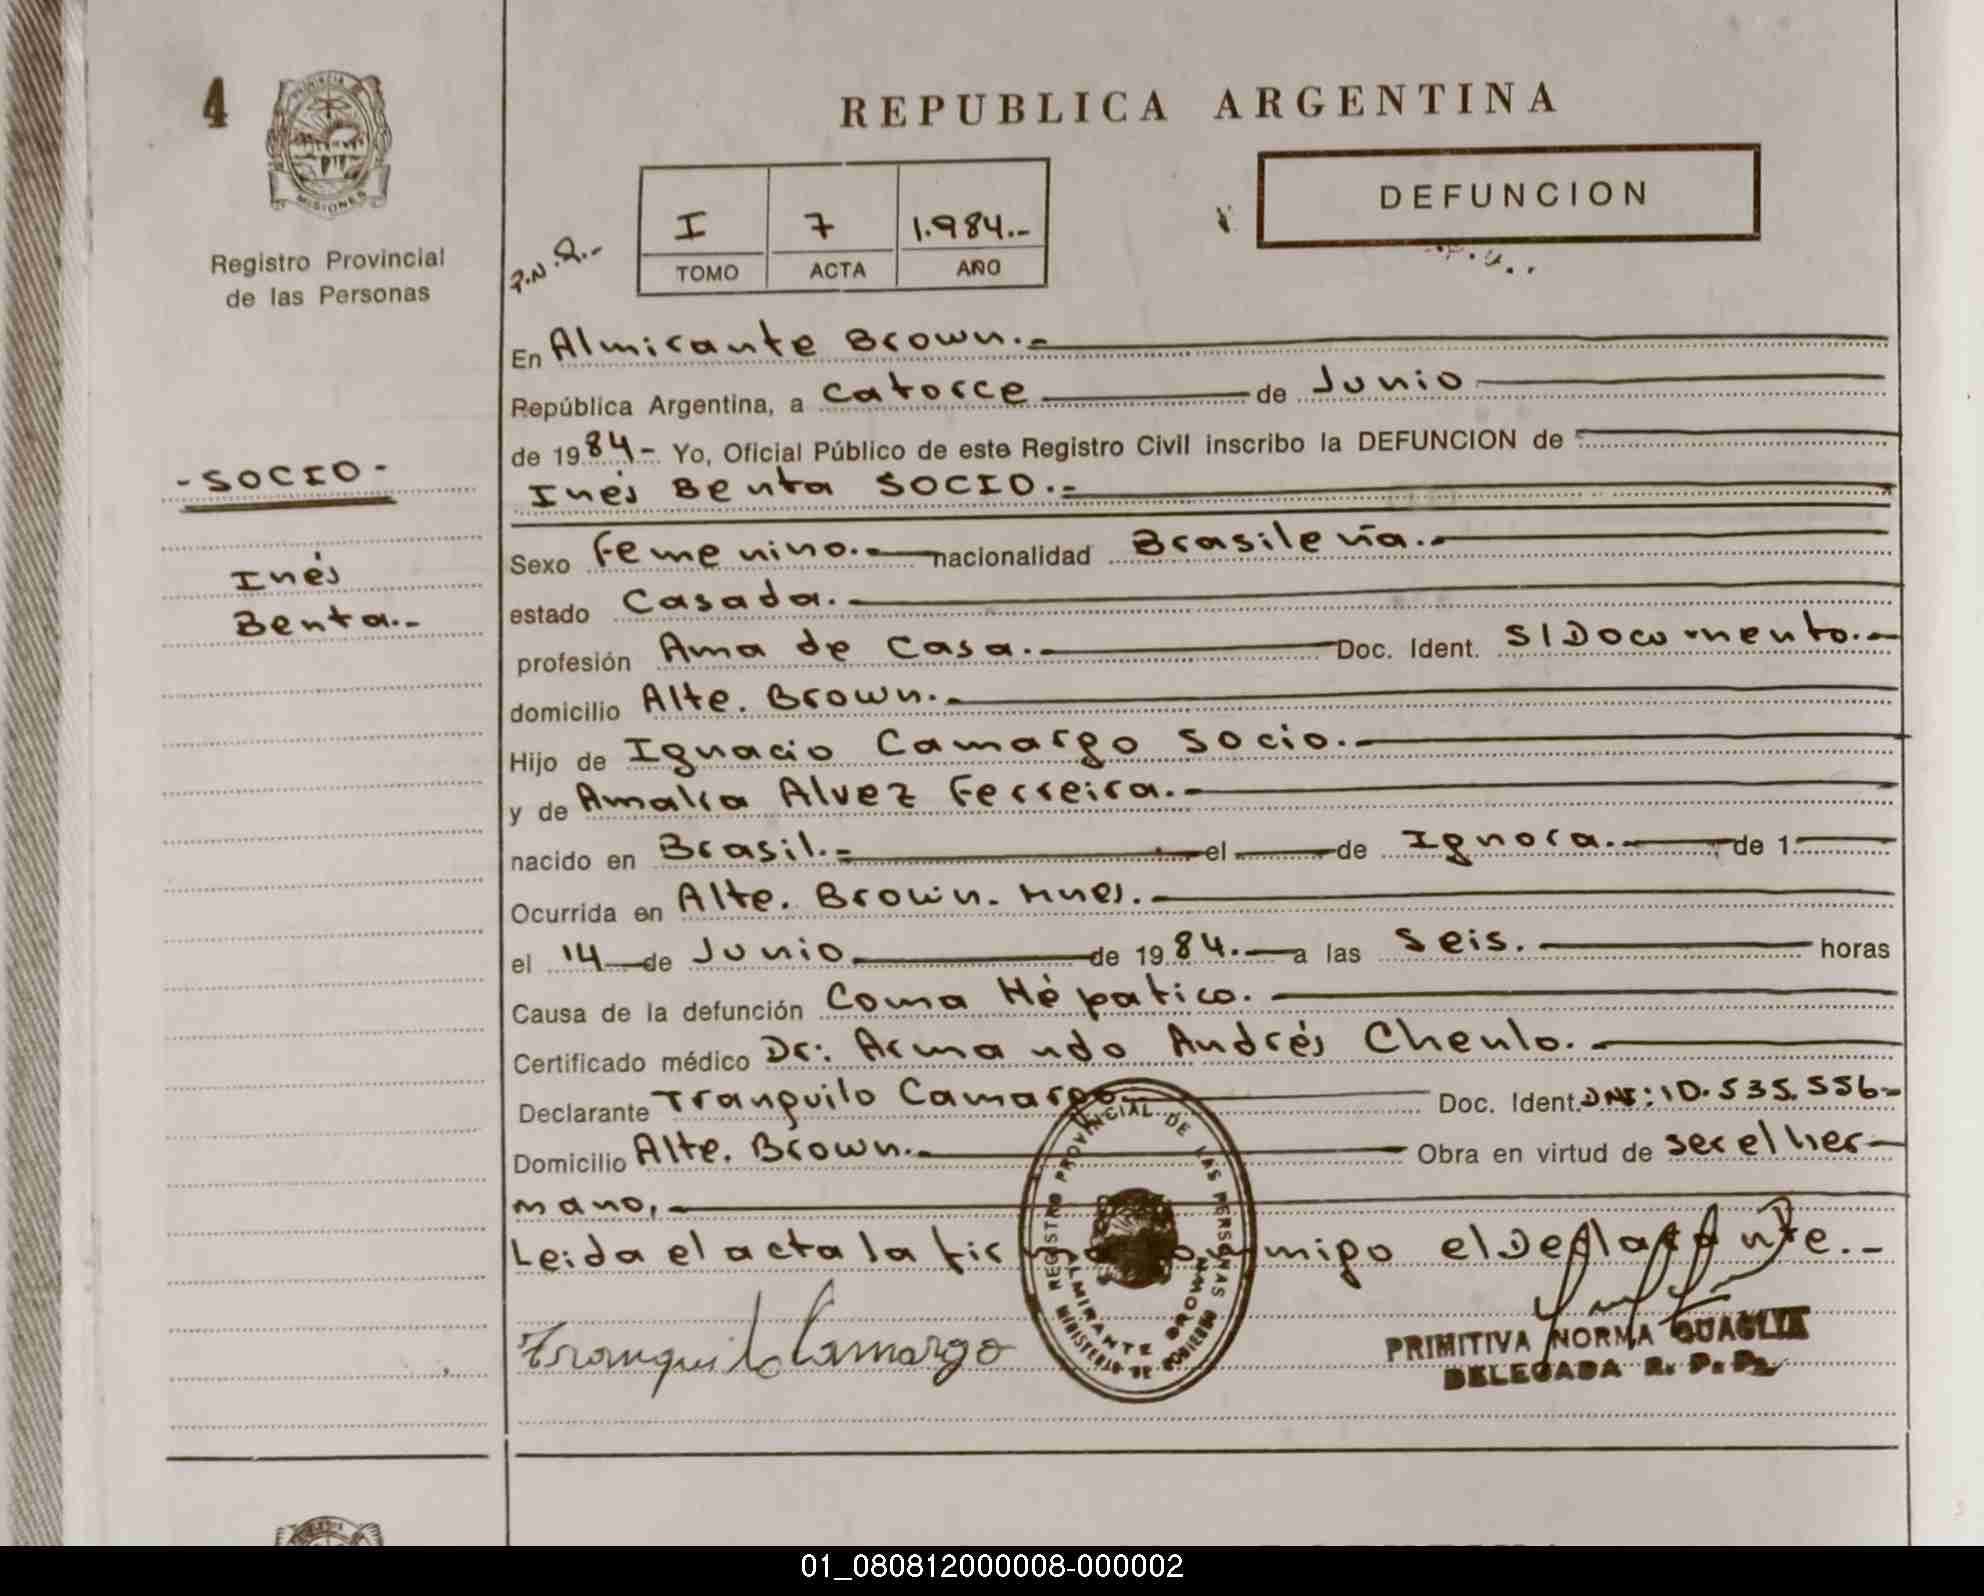 4
PROVINCIA
MISIONES
Registro Provincial
de las Personas
REPUBLICA ARGENTINA
DEFUNCION
I 7 1.984.-
TOMO ACTA AÑO
- SOCIO -
Inés
Benta.-
En Almirante Brown.-
República Argentina, a Catorce de Junio
de 1984- Yo, Oficial Público de este Registro Civil inscribo la DEFUNCION de
Inés Benta SOCIO.-
Sexo Femenino.- nacionalidad Brasileña.-
estado Casada.-
profesión Ama de Casa.- Doc. Ident. S/Documento.-
domicilio Alte. Brown.-
Hijo de Ignacio Camargo Socio.-
y de Amalia Alvez Ferreira.-
nacido en Brasil.- el de Ignora.- de 1
Ocurrida en Alte. Brown. Mnes.-
el 14 de Junio de 1984.- a las Seis. horas
Causa de la defunción Coma Hépatico.
Certificado médico Dr: Armando Andrés Chenlo.-
Declarante Tranquilo Camargo Doc. Ident. DNI: 10.535.556-
Domicilio Alte. Brown.- Obra en virtud de ser el her-
mano,
Leida el acta la firma conmigo el Declarante.-
REGISTRO PROVINCIAL DE LAS PERSONAS
ALMIRANTE BROWN
MINISTERIO DE GOBIERNO
Tranquilo Camargo
PRIMITIVA NORMA QUAGLIA
DELEGADA R. P. P.
01_080812000008-000002